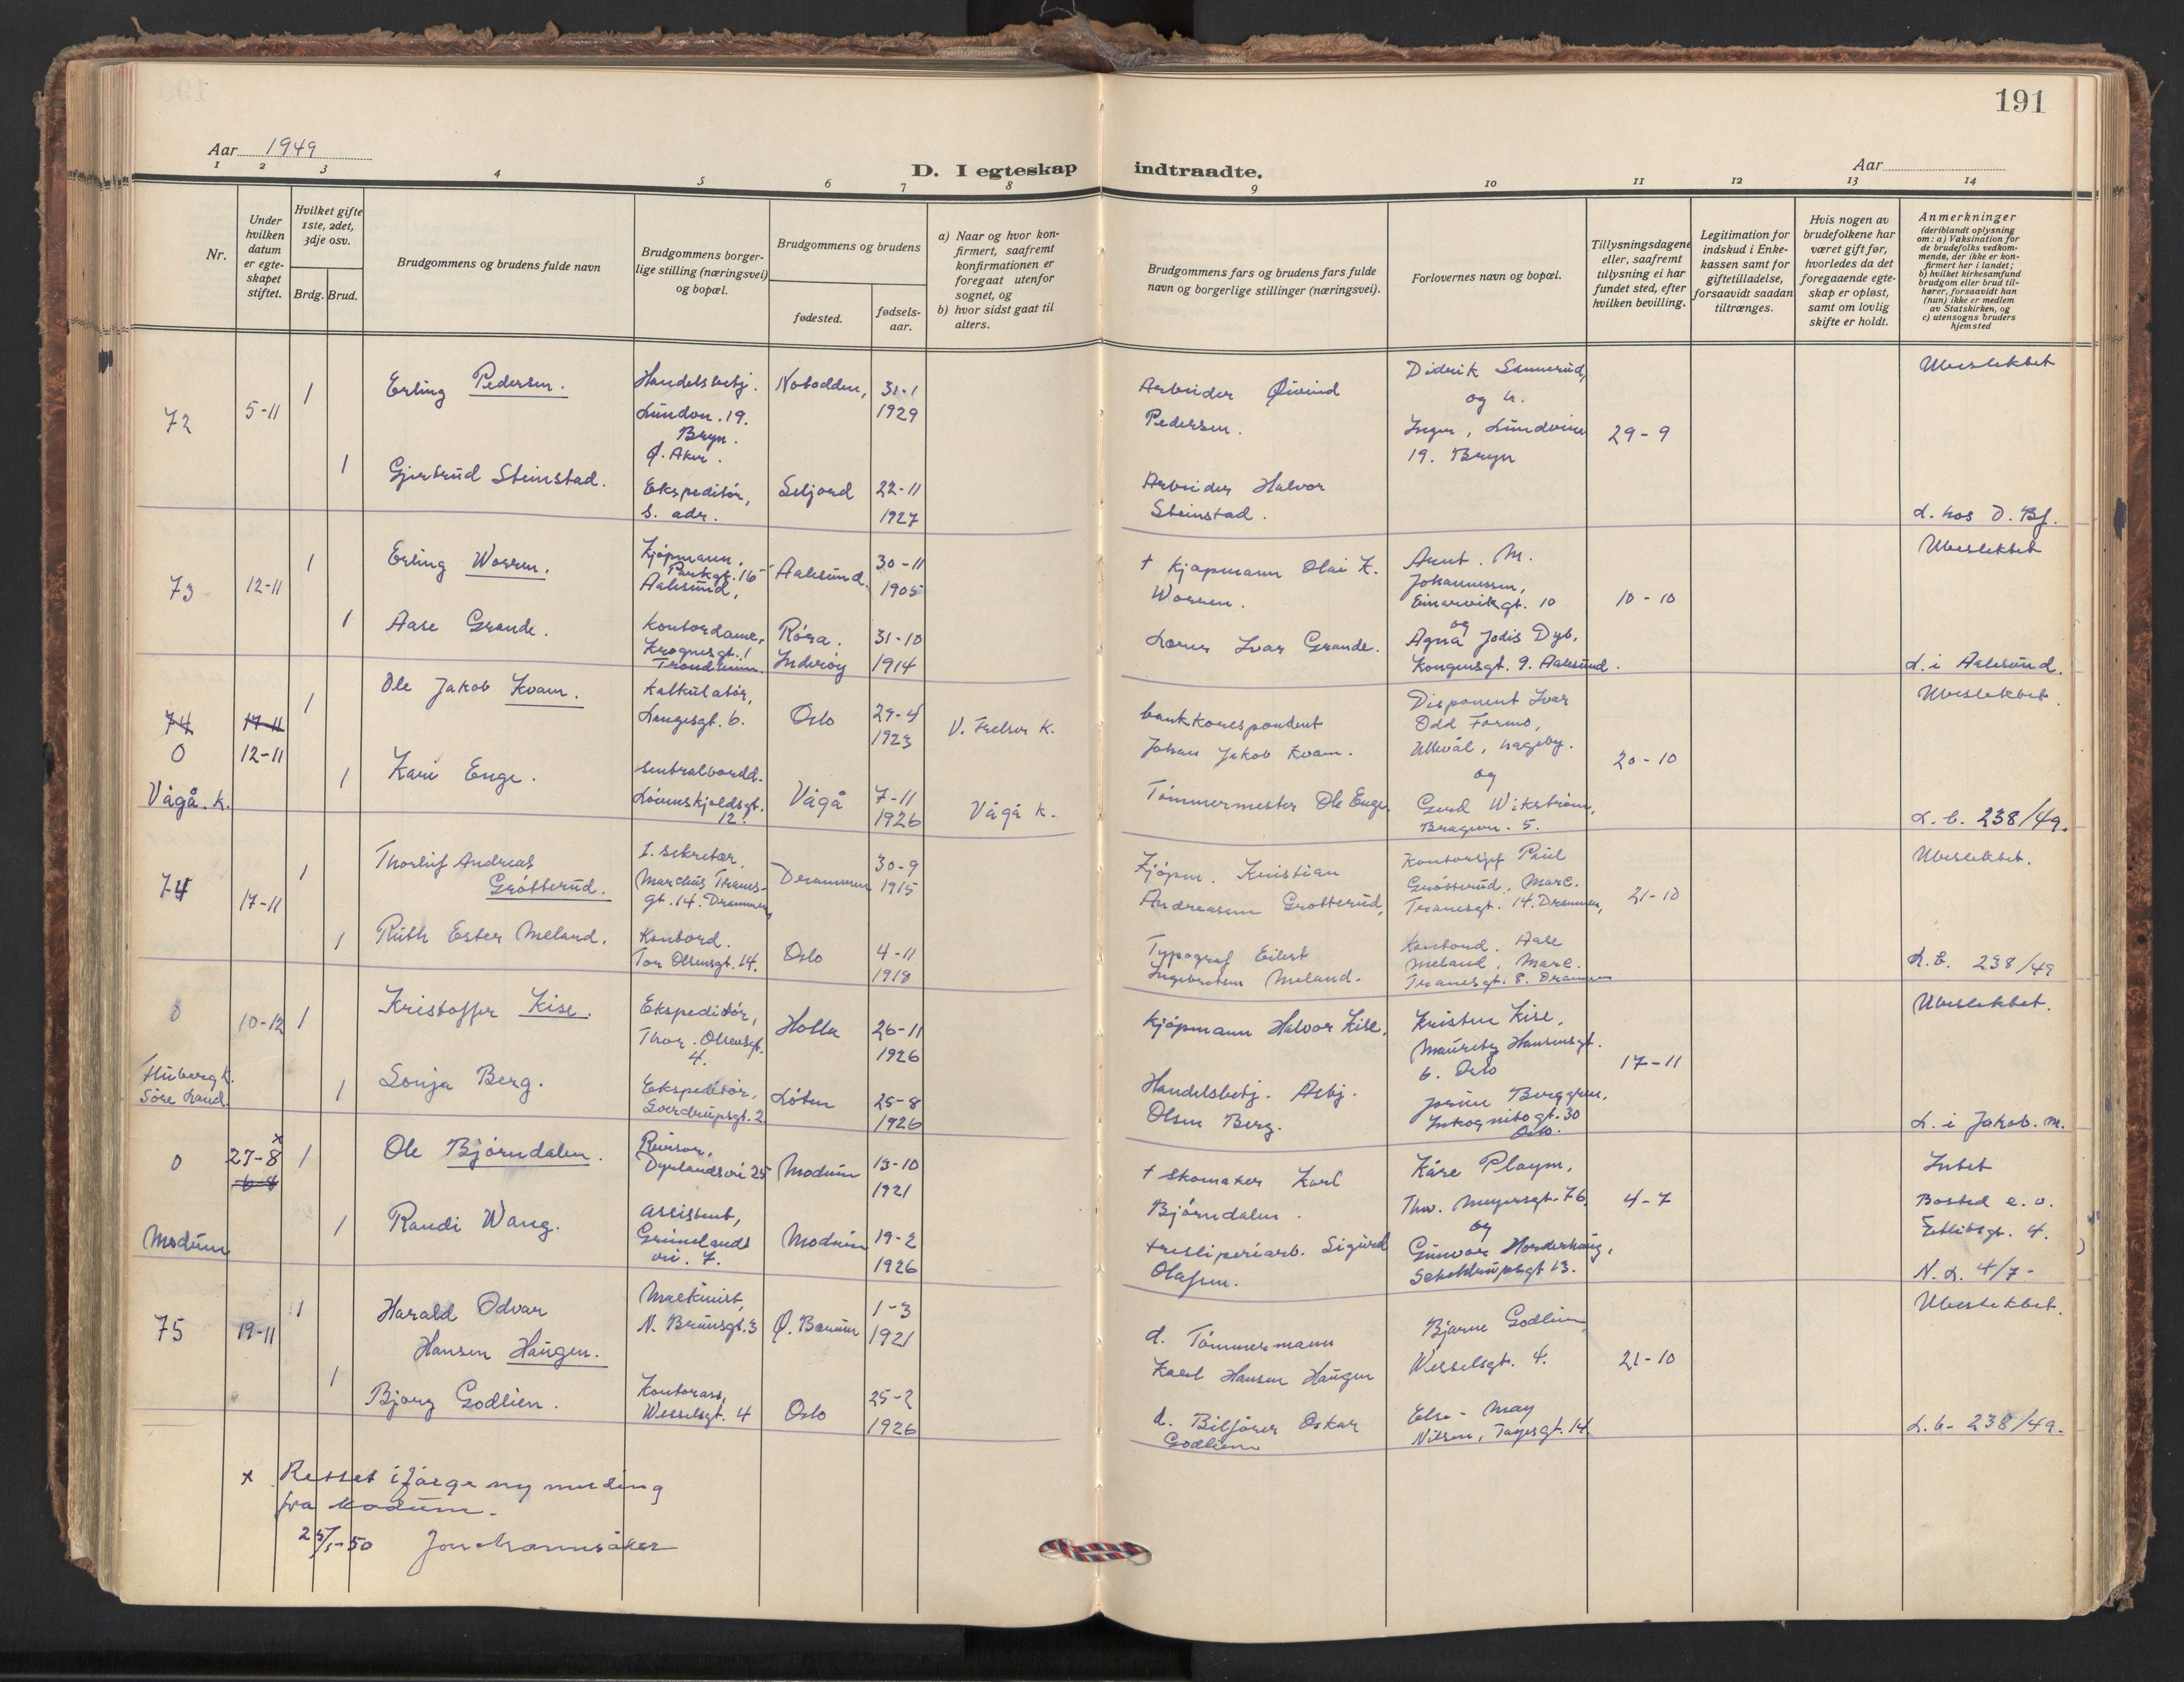 191
Aar 1949
D. I egteskap indtraadte.
Aar
1 2 3 4 5 6 7 8 9 10 11 12 13 14
Nr.
Under
hvilken
datum
er egte-
skapet
stiftet.
Hvilket gifte
1ste, 2det,
3dje osv.
Brdg. Brud.
Brudgommens og brudens fulde navn
Brudgommens borger-
lige stilling (næringsvei)
og bopæl.
Brudgommens og brudens
fødested.
fødsels-
aar.
a) Naar og hvor kon-
firmert, saafremt
konfirmationen er
foregaat utenfor
sognet, og
b) hvor sidst gaat til
alters.
Brudgommens fars og brudens fars fulde
navn og borgerlige stillinger (næringsvei).
Forlovernes navn og bopæl.
Tillysningsdagene
eller, saafremt
tillysning ei har
fundet sted, efter
hvilken bevilling.
Legitimation for
indskud i Enke-
kassen samt for
giftetilladelse,
forsaavidt saadan
tiltrænges.
Hvis nogen av
brudefolkene har
været gift før,
hvorledes da det
foregaaende egte-
skap er opløst,
samt om lovlig
skifte er holdt.
Anmerkninger
(deriblandt oplysning
om: a) Vaksination for
de brudefolks vedkom-
mende, der ikke er kon-
firmert her i landet;
b) hvilket kirkesamfund
brudgom eller brud til-
hører, forsaavidt han
(hun) ikke er medlem
av Statskirken, og
c) utensogns bruders
hjemsted
72
5-11
1
Erling Pedersen.
Handelsbetj.
Lundvn. 19.
Bryn.
Ø. Aker.
Notodden,
31-1
1929
Arbeider Øivind
Pedersen.
Diderik Sannerud,
og h.
Inger, Lundveien
19. Bryn
29-9
Ubeslektet
1
Gjertrud Steinstad.
Ekspeditør,
s. adr.
Seljord
22-11
1927
Arbeider Halvor
Steinstad.
L. hos D. Bf.
73
12-11
1
Erling Worren.
Kjøpmann,
Parkgt. 16
Aalesund,
Aalesund.
30-11
1905
+ Kjøpmann Olai K.
Worren.
Arnt. M.
Johannessen,
Einarvikgt. 10
og
10-10
Ubeslektet
1
Aase Grande.
Kontordame,
Krognesgt. 1
Trondheim.
Røra.
Inderøy
31-10
1914
Lærer Ivar Grande.
Agna Jodis Dyb,
Kongensgt. 9. Aalesund.
L. i Aalesund.
74
O
Vågå. k.
17-11
12-11
1
Ole Jakob Kvam.
Kalkulatør,
Langesgt. 6.
Oslo
29-4
1923
V. Frelser K.
bankkorespondent
Johan Jakob Kvam.
Disponent Ivar
Odd Formo,
Ullevål, hageby.
og
20-10
Ubeslektet.
1
Kari Enge.
Sentralbordd.
Løvenskjoldsgt.
12.
Vågå
7-11
1926
Vågå k.
Tømmermester Ole Enge.
Gerd Wikstrøm,
Bragevn. 5.
L. b. 238/49.
74
17-11
1
Thorleif Andreas
Grøtterud.
1. sekretær,
Marcus Thranes-
gt. 14. Drammen,
Drammen
30-9
1915
Kjøpm. Kristian
Andreassen Grøtterud,
Kontorsjef Paul
Grøtterud, Marc.
Tranesgt. 14. Drammen,
21-10
Ubeslektet.
1
Ruth Ester Meland.
Kontord.
Tor Olsensgt. 14.
Oslo
4-11
1918
Typograf Eilert
Ingebretsen Meland.
Kontord. Aase
Meland, Marc.
Tranesgt. 8. Drammen
L. b. 238/49
O
Søre Land.
10-12
1
Kristoffer Kise.
Ekspeditør,
Thor. Olsensgt.
4.
Holla
26-11
1926
Kjøpmann Halvor Kise.
Kristen Kise,
Mauretz Hansensgt.
6. Oslo
17-11
Ubeslektet.
1
Sonja Berg.
Ekspeditør,
Sverdrupsgt. 2
Løten
25-8
1926
Handelsbetj. Asbj.
Olsen Berg.
Jorun Berggren,
Inkognitogt. 30
Oslo.
L. i Jakob. m.
O
Modum
x
27-8
6-8
1
Ole Bjørndalen.
Revisor,
Dynlandsvei 25
Modum
13-10
1921
+ Skomaker Karl
Bjørndalen.
Kåre Playm,
Thv. Meyersgt. 76,
og
4-7
Intet
Bosted e. v.
1
Randi Wang.
assistent,
Grünelands
vei. 7.
Modum
19-2
1926
tresliperiarb. Sigurd
Olafsen.
Gunvor Horderhaug,
Scheldrupsgt 13.
N. L. 4/7-
75
19-11
1
Harald Odvar
Hansen Haugen.
Maskinist,
N. Brunsgt. 3
Ø. Bærum
1-3
1921
d. Tømmermann
Karl Hansen Haugen
Bjarne Godlien,
Wesselsgt. 4.
21-10
Ubeslektet.
1
Bjørg Godlien.
Kontorass,
Wesselsgt. 4
Oslo
25-2
1926
d. Bilfører Oskar
Godlien
Else-May
Nilsen, Tøyengt. 14
L. b. 238/49.
x Rettet ifølge ny melding
fra Modum.
25/1-50 Jon Mannsåker